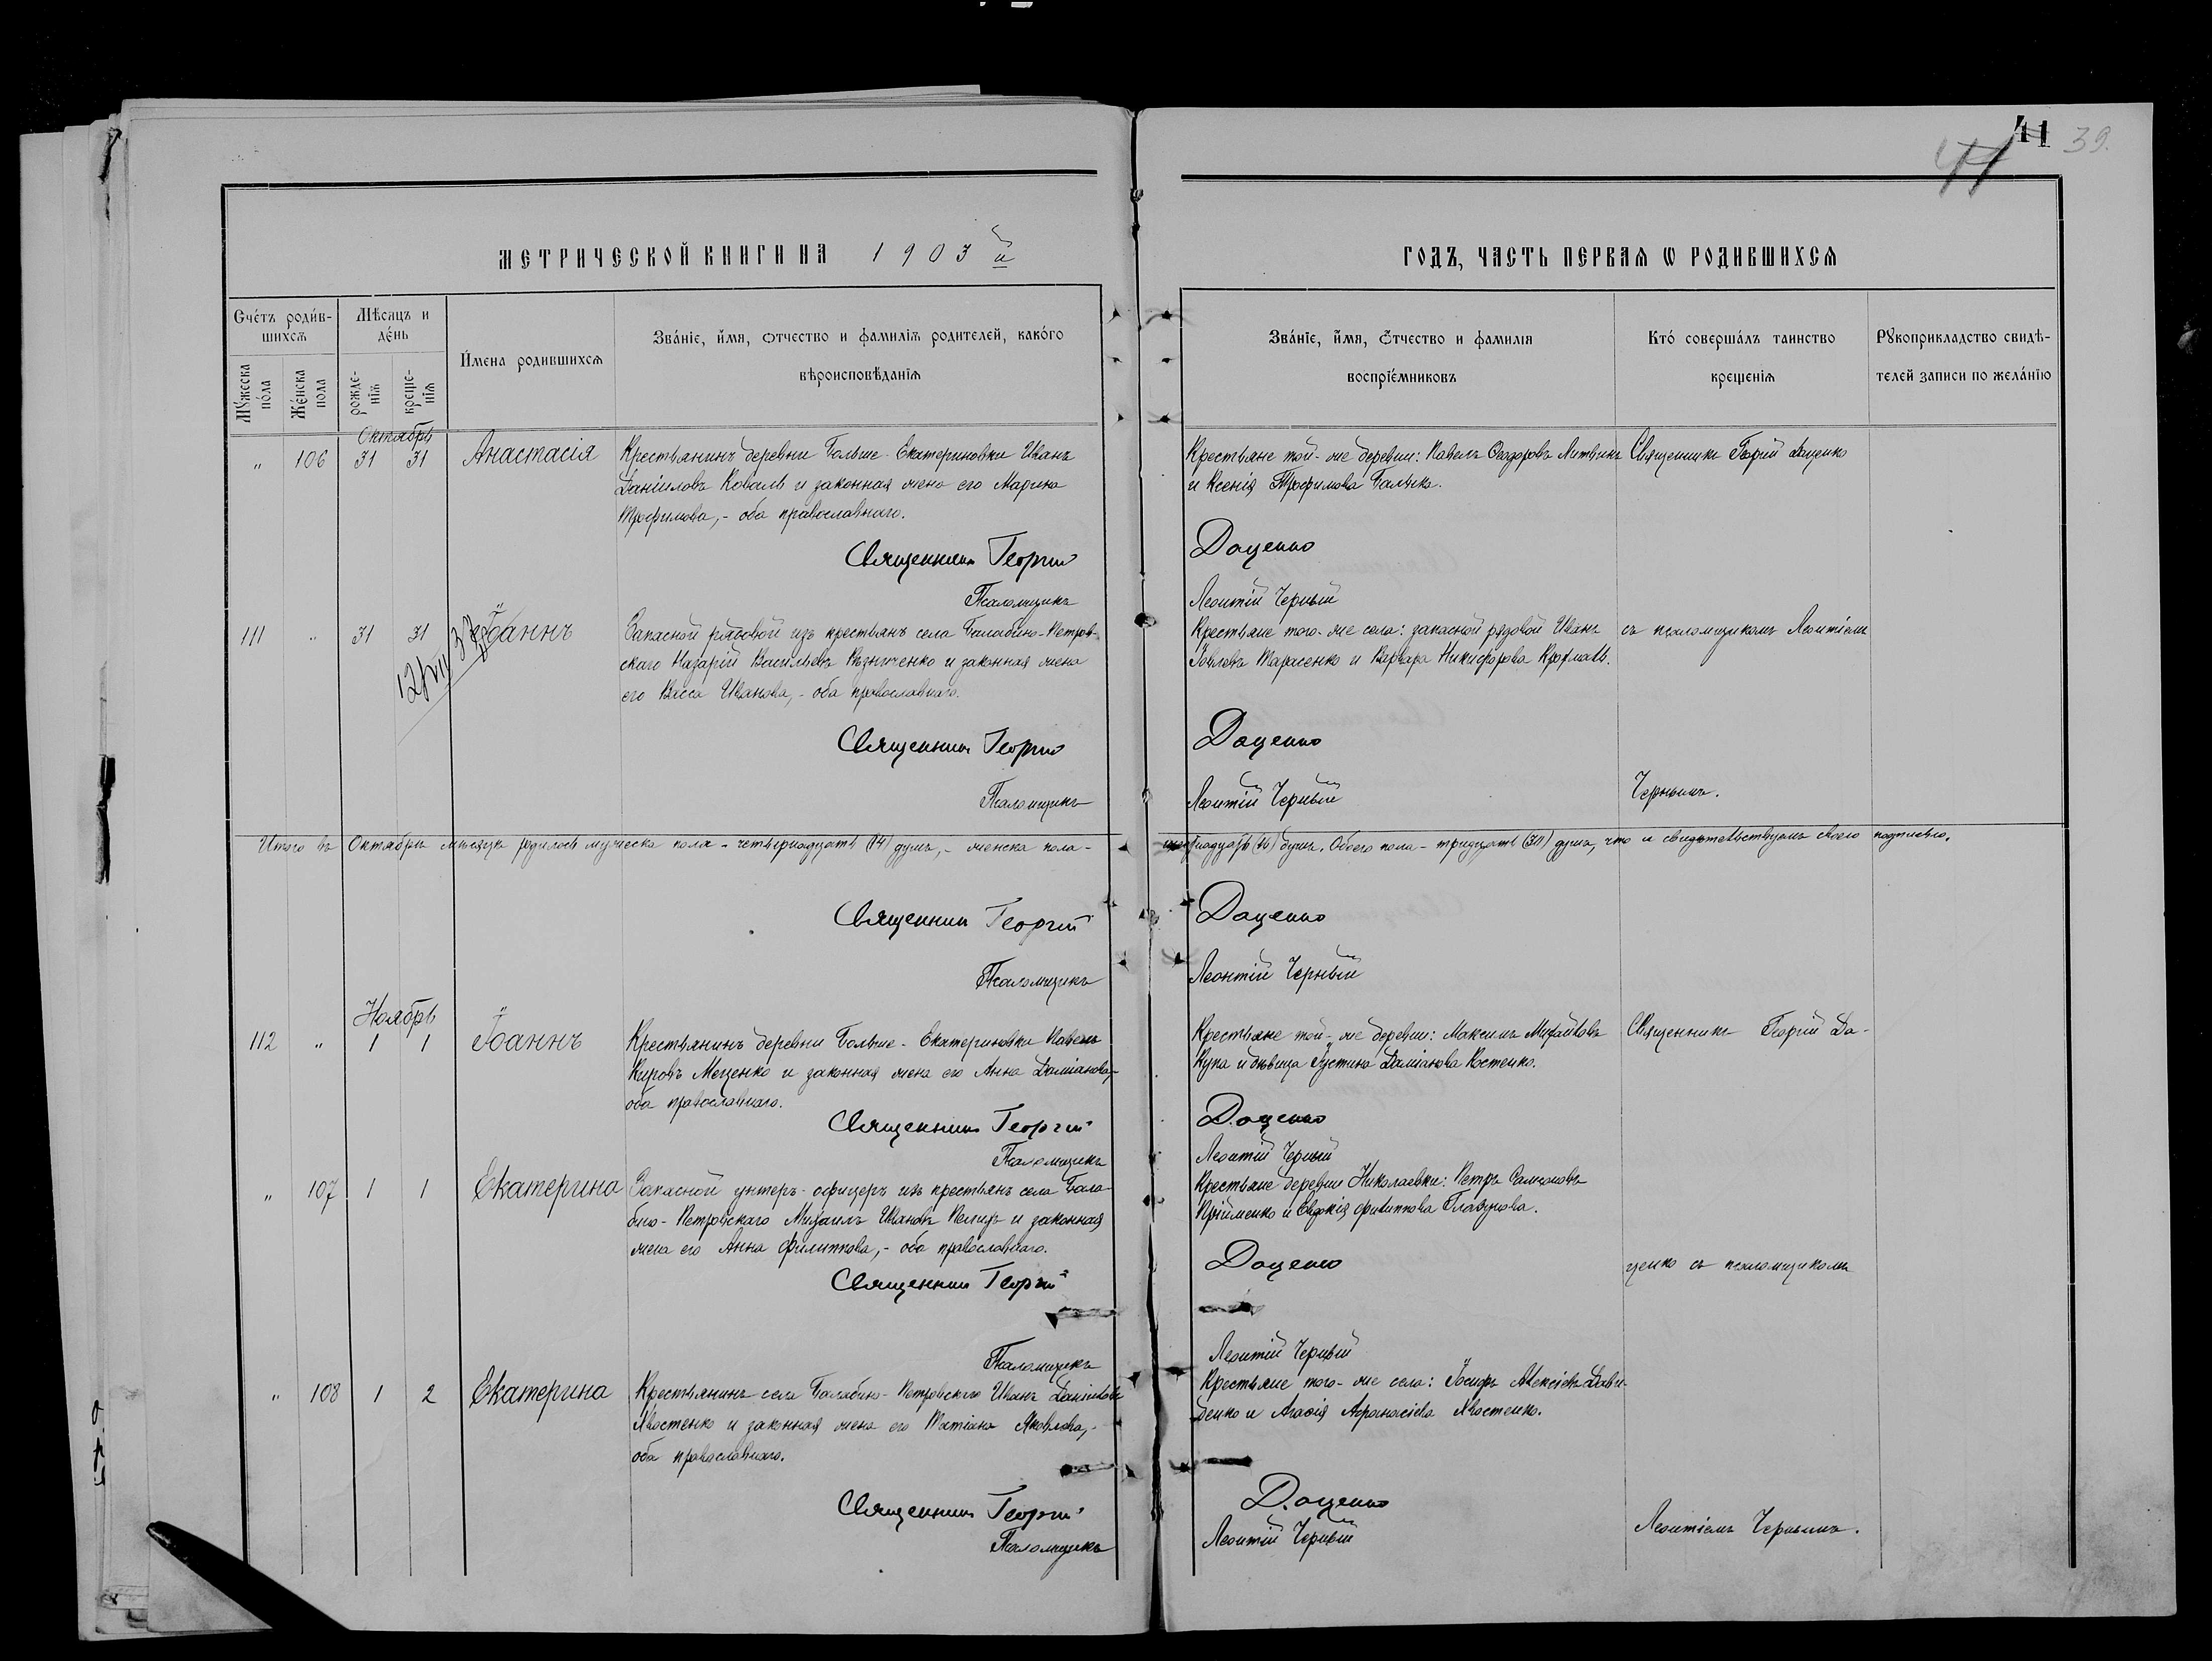 41 39.
41
МЕТРИЧЕСКОЙ КНИГИ НА 1903 й
ГОДЪ, ЧАСТЬ ПЕРВАЯ Ѡ РОДИВШИХСЯ
Счетъ родив-
шихся
Мѣсяцъ и
день
Имена родившихся
Званіе, имя, отчество и фамилія родителей, какого
вѣроисповѣданія
Мужеска
пола
Женска
пола
рожде-
нія
креще-
нія
Званіе, имя, отчество и фамилія
воспріемниковъ
Кто совершалъ таинство
крещенія
Рукоприкладство свидѣ-
телей записи по желанію
Октябрь
„ 106 31 31 Анастасія
Крестьянинъ деревни Больше-Екатериновки Иванъ
Даніиловъ Коваль и законная жена его Марина
Трофимова,- оба православнаго.
Крестьяне той-же деревни: Павелъ Ѳеодоровъ Литвинъ
и Ксенія Трофимова
Священникъ Георгій Доценко
Священникъ Георгій Доценко
Псаломщикъ Леонтій Черный
111 „ 31 31 Іоаннъ
Запасной рядовой изъ крестьянъ села Балабино-Петров-
скаго Назарій Васильевъ и законная жена
его Васса Иванова,- оба православнаго.
Крестьяне того-же села: запасной рядовой Иванъ
Тарасенко и Варвара Никифорова
съ псаломщикомъ Леонтіемъ
Священникъ Георгій Доценко
Псаломщикъ Леонтій Черный
Чернымъ.
Итого въ Октябрѣ мѣсяцѣ родилось мужеска пола - четырнадцать (14) душъ,- женска пола - шестнадцать (16) душъ. Обоего пола - тридцать (30) душъ, что и свидѣтельствуемъ своею подписью.
Священникъ Георгій Доценко
Псаломщикъ Леонтій Черный
Ноябрь
112 „ 1 1 Іоаннъ
Крестьянинъ деревни Больше-Екатериновки Павелъ
Кировъ Меценко и законная жена его Анна Даміанова,-
оба православнаго.
Крестьяне той-же деревни: Максимъ Михайловъ
Купа и дѣвица Іустина Даміанова Костенко.
Священникъ Георгій До-
Священникъ Георгій Доценко
Псаломщикъ Леонтій Черный
„ 107 1 1 Екатерина
Запасной унтеръ-офицеръ изъ крестьянъ села Бала-
бино-Петровскаго Михаилъ Ивановъ и законная
жена его Анна Филиппова,- оба православнаго.
Крестьяне деревни Николаевки: Петръ
Прійменко и Евдокія Филиппова Глазунова.
Священникъ Георгій Доценко
ценко съ псаломщикомъ
Псаломщикъ Леонтій Черный
„ 108 1 2 Екатерина
Крестьянинъ села Балабино-Петровскаго Иванъ Даніиловъ
Хвостенко и законная жена его Татіана Яковлева,-
оба православнаго.
Крестьяне того-же села: Іосифъ Алексіевъ Дави-
денко и Агафія Афанасіева Хвостенко.
Священникъ Георгій Доценко
Псаломщикъ Леонтій Черный
Леонтіемъ Чернымъ.